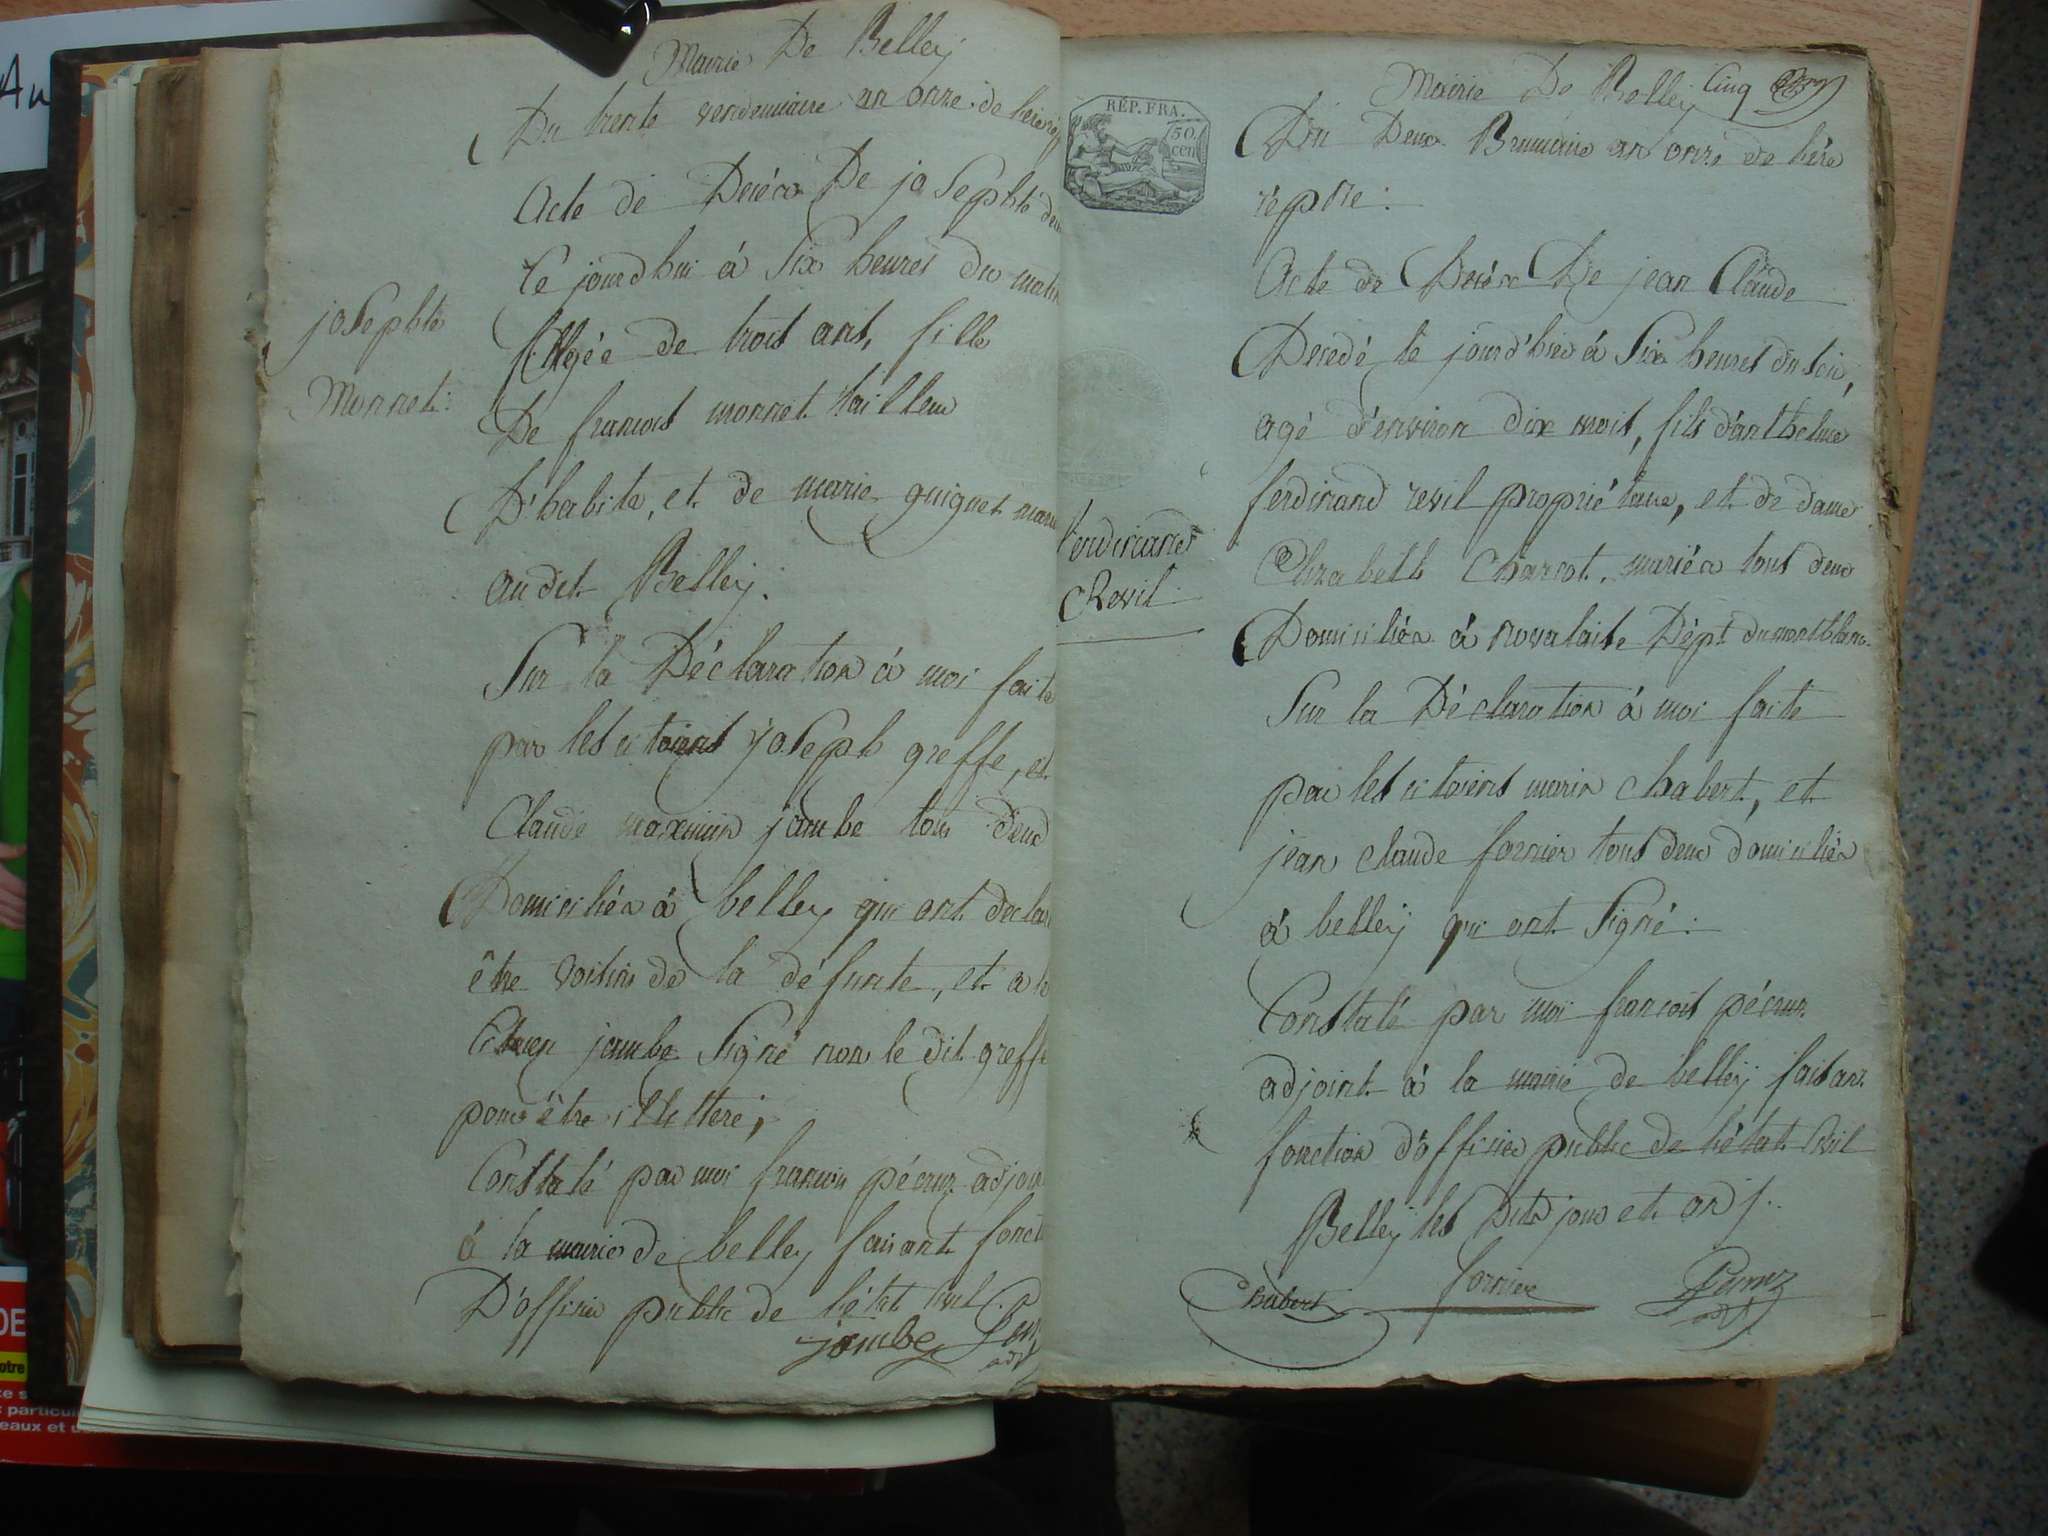 Mairie De Belley
Du trente vendemiaire an onze de
Acte de Décès De josephte
Ce jourd'hui à six heures du matin
josephte
Monnet:
Agée de trois ans, fille
De francois monnet tailleur
D'habits, et de marie guignet
audit Belley.
Sur la Déclaration à moi faite
par les citoiens joseph greffe, et
Claude maximin jambe tous deux
Domiciliés à belley qui ont
être voisins de la défunte, et a le
Citoien jambe signé non le dit greffe
pour être illitteré,
Constaté par moi francois pécruz
à la mairie de belley faisant
D'officier public de l'état civil.
jambe
RÉP. FRA.
50.
cen
Mairie De Belley Cinq
Du Deux Brumaire an onze de l'ère
Acte de Décès De jean Claude
Decedé le jourd'hier à six heures du soir,
agé d'environ dix mois, fils d'anthelme
ferdinand revil propriétaire, et de dame
ferdinand
Revil
Elizabeth Charcot, mariés tous deux
Domiciliés à novalaise Dépt du montblanc.
Sur la Déclaration à moi faite
par les citoiens marin chabert, et
jean claude fornier tous deux domiciliés
à belley qui ont signé:
Constaté par moi francois pécruz
adjoint à la mairie de belley faisant
fonction d'officier public de l'état civil
Belley les Dits jour et an
Chabert fornier
AU
DE
otre
particul
eaux et